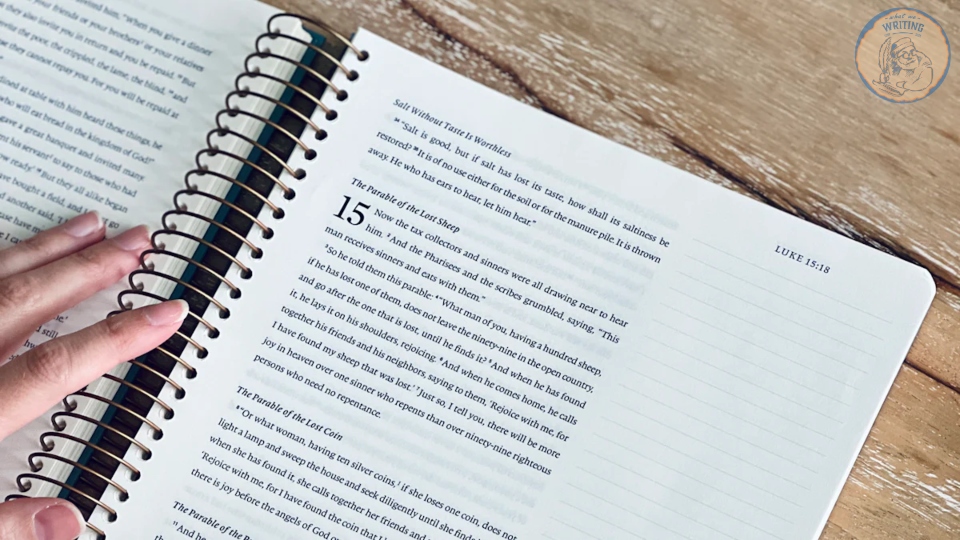 him, "When you give a dinner
your friends or your brothers' or your relatives
also invite you in return and you be repaid.
the poor, the crippled, the lame, the blind, and
they cannot repay you. For you will be repaid at
reclined at table with him heard these things, he
who will eat bread in the kingdom of God!"
gave a great banquet and invited many
his servant to say to those who had
now ready.' But they all alike began
have bought a field, and I
another said,
what we
WRITING
Salt Without Taste Is Worthless
34 "Salt is good, but if salt has lost its taste, how shall its saltiness be
restored? 35 It is of no use either for the soil or for the manure pile. It is thrown
away. He who has ears to hear, let him hear."
LUKE 15:18
The Parable of the Lost Sheep
15 Now the tax collectors and sinners were all drawing near to hear
him. 2 And the Pharisees and the scribes grumbled, saying, "This
man receives sinners and eats with them."
3 So he told them this parable: 4 "What man of you, having a hundred sheep,
if he has lost one of them, does not leave the ninety-nine in the open country,
and go after the one that is lost, until he finds it? 5 And when he has found
it, he lays it on his shoulders, rejoicing. 6 And when he comes home, he calls
together his friends and his neighbors, saying to them, 'Rejoice with me, for
I have found my sheep that was lost.' 7 Just so, I tell you, there will be more
joy in heaven over one sinner who repents than over ninety-nine righteous
persons who need no repentance.
The Parable of the Lost Coin
8 "Or what woman, having ten silver coins, if she loses one coin, does not
light a lamp and sweep the house and seek diligently until she finds
when she has found it, she calls together her friends and
'Rejoice with me, for I have found the coin that I
there is joy before the angels of God
The Parable of the
11 "And he